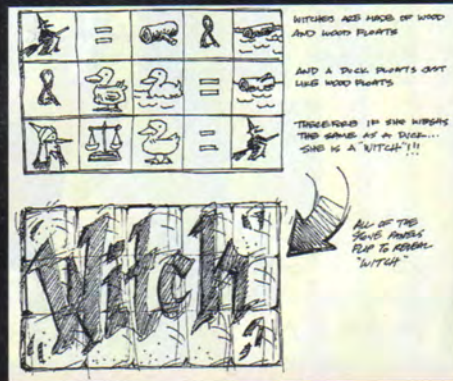 WITCHES ARE MADE OF WOOD
AND WOOD FLOATS
AND A DUCK FLOATS JUST
LIKE WOOD FLOATS
THEREFORE IF SHE WEIGHS
THE SAME AS A DUCK...
SHE IS A "WITCH"!!!
= &
& =
=
Witch
ALL OF THE
SIGNS PANELS
FLIP TO REVEAL
"WITCH"